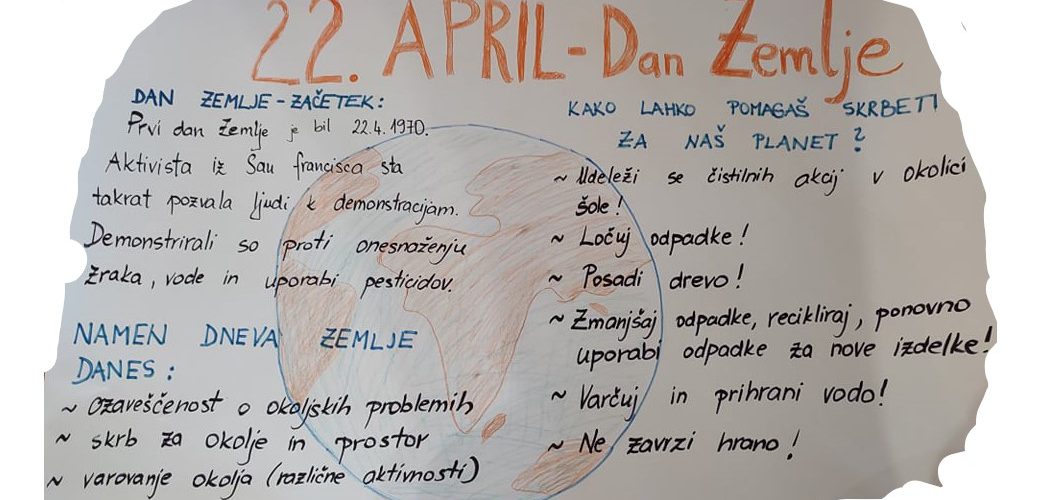 22. APRIL - Dan Zemlje
DAN ZEMLJE - ZAČETEK:
Prvi dan Zemlje je bil 22.4.1970.
Aktivista iz San francisca sta
takrat pozvala ljudi k demonstracijam.
Demonstrirali so proti onesnaženju
zraka, vode in uporabi pesticidov.
NAMEN DNEVA ZEMLJE
DANES:
~ Ozaveščenost o okoljskih problemih
~ skrb za okolje in prostor
~ varovanje okolja (različne aktivnosti)
KAKO LAHKO POMAGAŠ SKRBETI
ZA NAŠ PLANET?
~ Udeleži se čistilnih akcij v okolici
šole!
~ Ločuj odpadke!
~ Posadi drevo!
~ Zmanjšaj odpadke, recikliraj, ponovno
uporabi odpadke za nove izdelke!
~ Varčuj in prihrani vodo!
~ Ne zavrzi hrano!